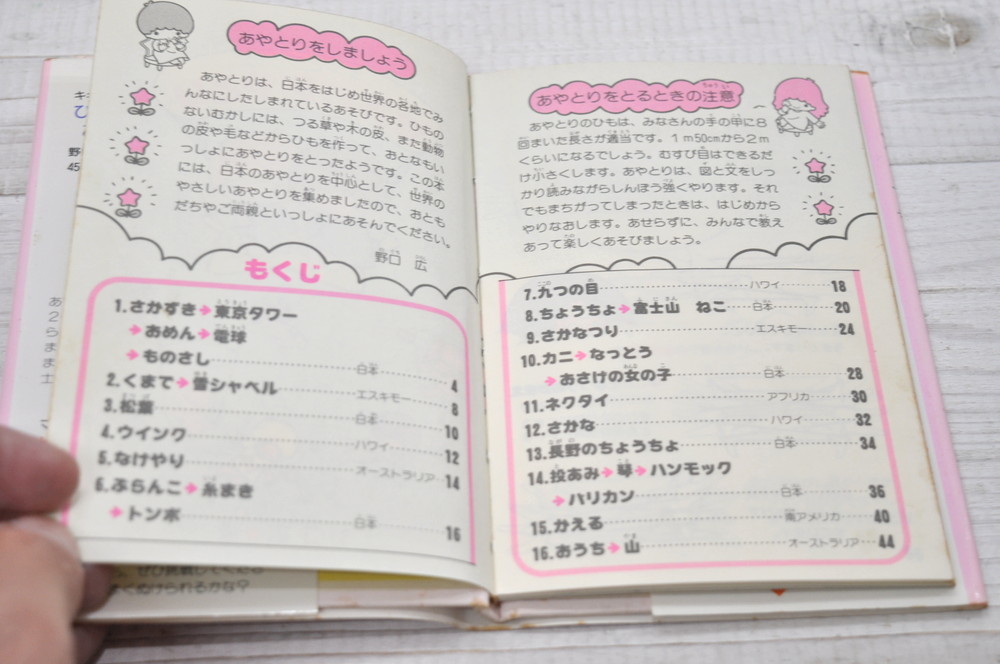 あやとりをしましょう
あやとりは、日本をはじめ世界の各地でみ
んなにしたしまれているあそびです。ひもの
ないむかしには、つる草や木の皮、また動物
の皮や毛などからひもを作って、おとなもい
っしょにあやとりをとったようです。この本
には、日本のあやとりを中心として、世界の
やさしいあやとりを集めましたので、おとも
だちやご両親といっしょにあそんでください。
野口 広
もくじ
1.さかずき➔東京タワー
➔おめん➔電球
➔ものさし 日本 4
2.くまで➔雪シャベル エスキモー 8
3.松葉 日本 10
4.ウインク ハワイ 12
5.なげやり オーストラリア 14
6.ぶらんこ➔糸まき
➔トンボ 日本 16
あやとりをとるときの注意
あやとりのひもは、みなさんの手の甲に8
回まいた長さが適当です。1m50cmから2m
くらいになるでしょう。むすび目はできるだ
け小さくします。あやとりは、図と文をしっ
かり読みながらしんぼう強くやります。それ
でもまちがってしまったときは、はじめから
やりなおします。あせらずに、みんなで教え
あって楽しくあそびましょう。
7.九つの目 ハワイ 18
8.ちょうちょ➔富士山 ねこ 日本 20
9.さかなつり エスキモー 24
10.カニ➔なっとう
➔おさげの女の子 日本 28
11.ネクタイ アフリカ 30
12.さかな ハワイ 32
13.長野のちょうちょ 日本 34
14.投あみ➔琴➔ハンモック
➔バリカン 日本 36
15.かえる 南アメリカ 40
16.おうち➔山 オーストラリア 44